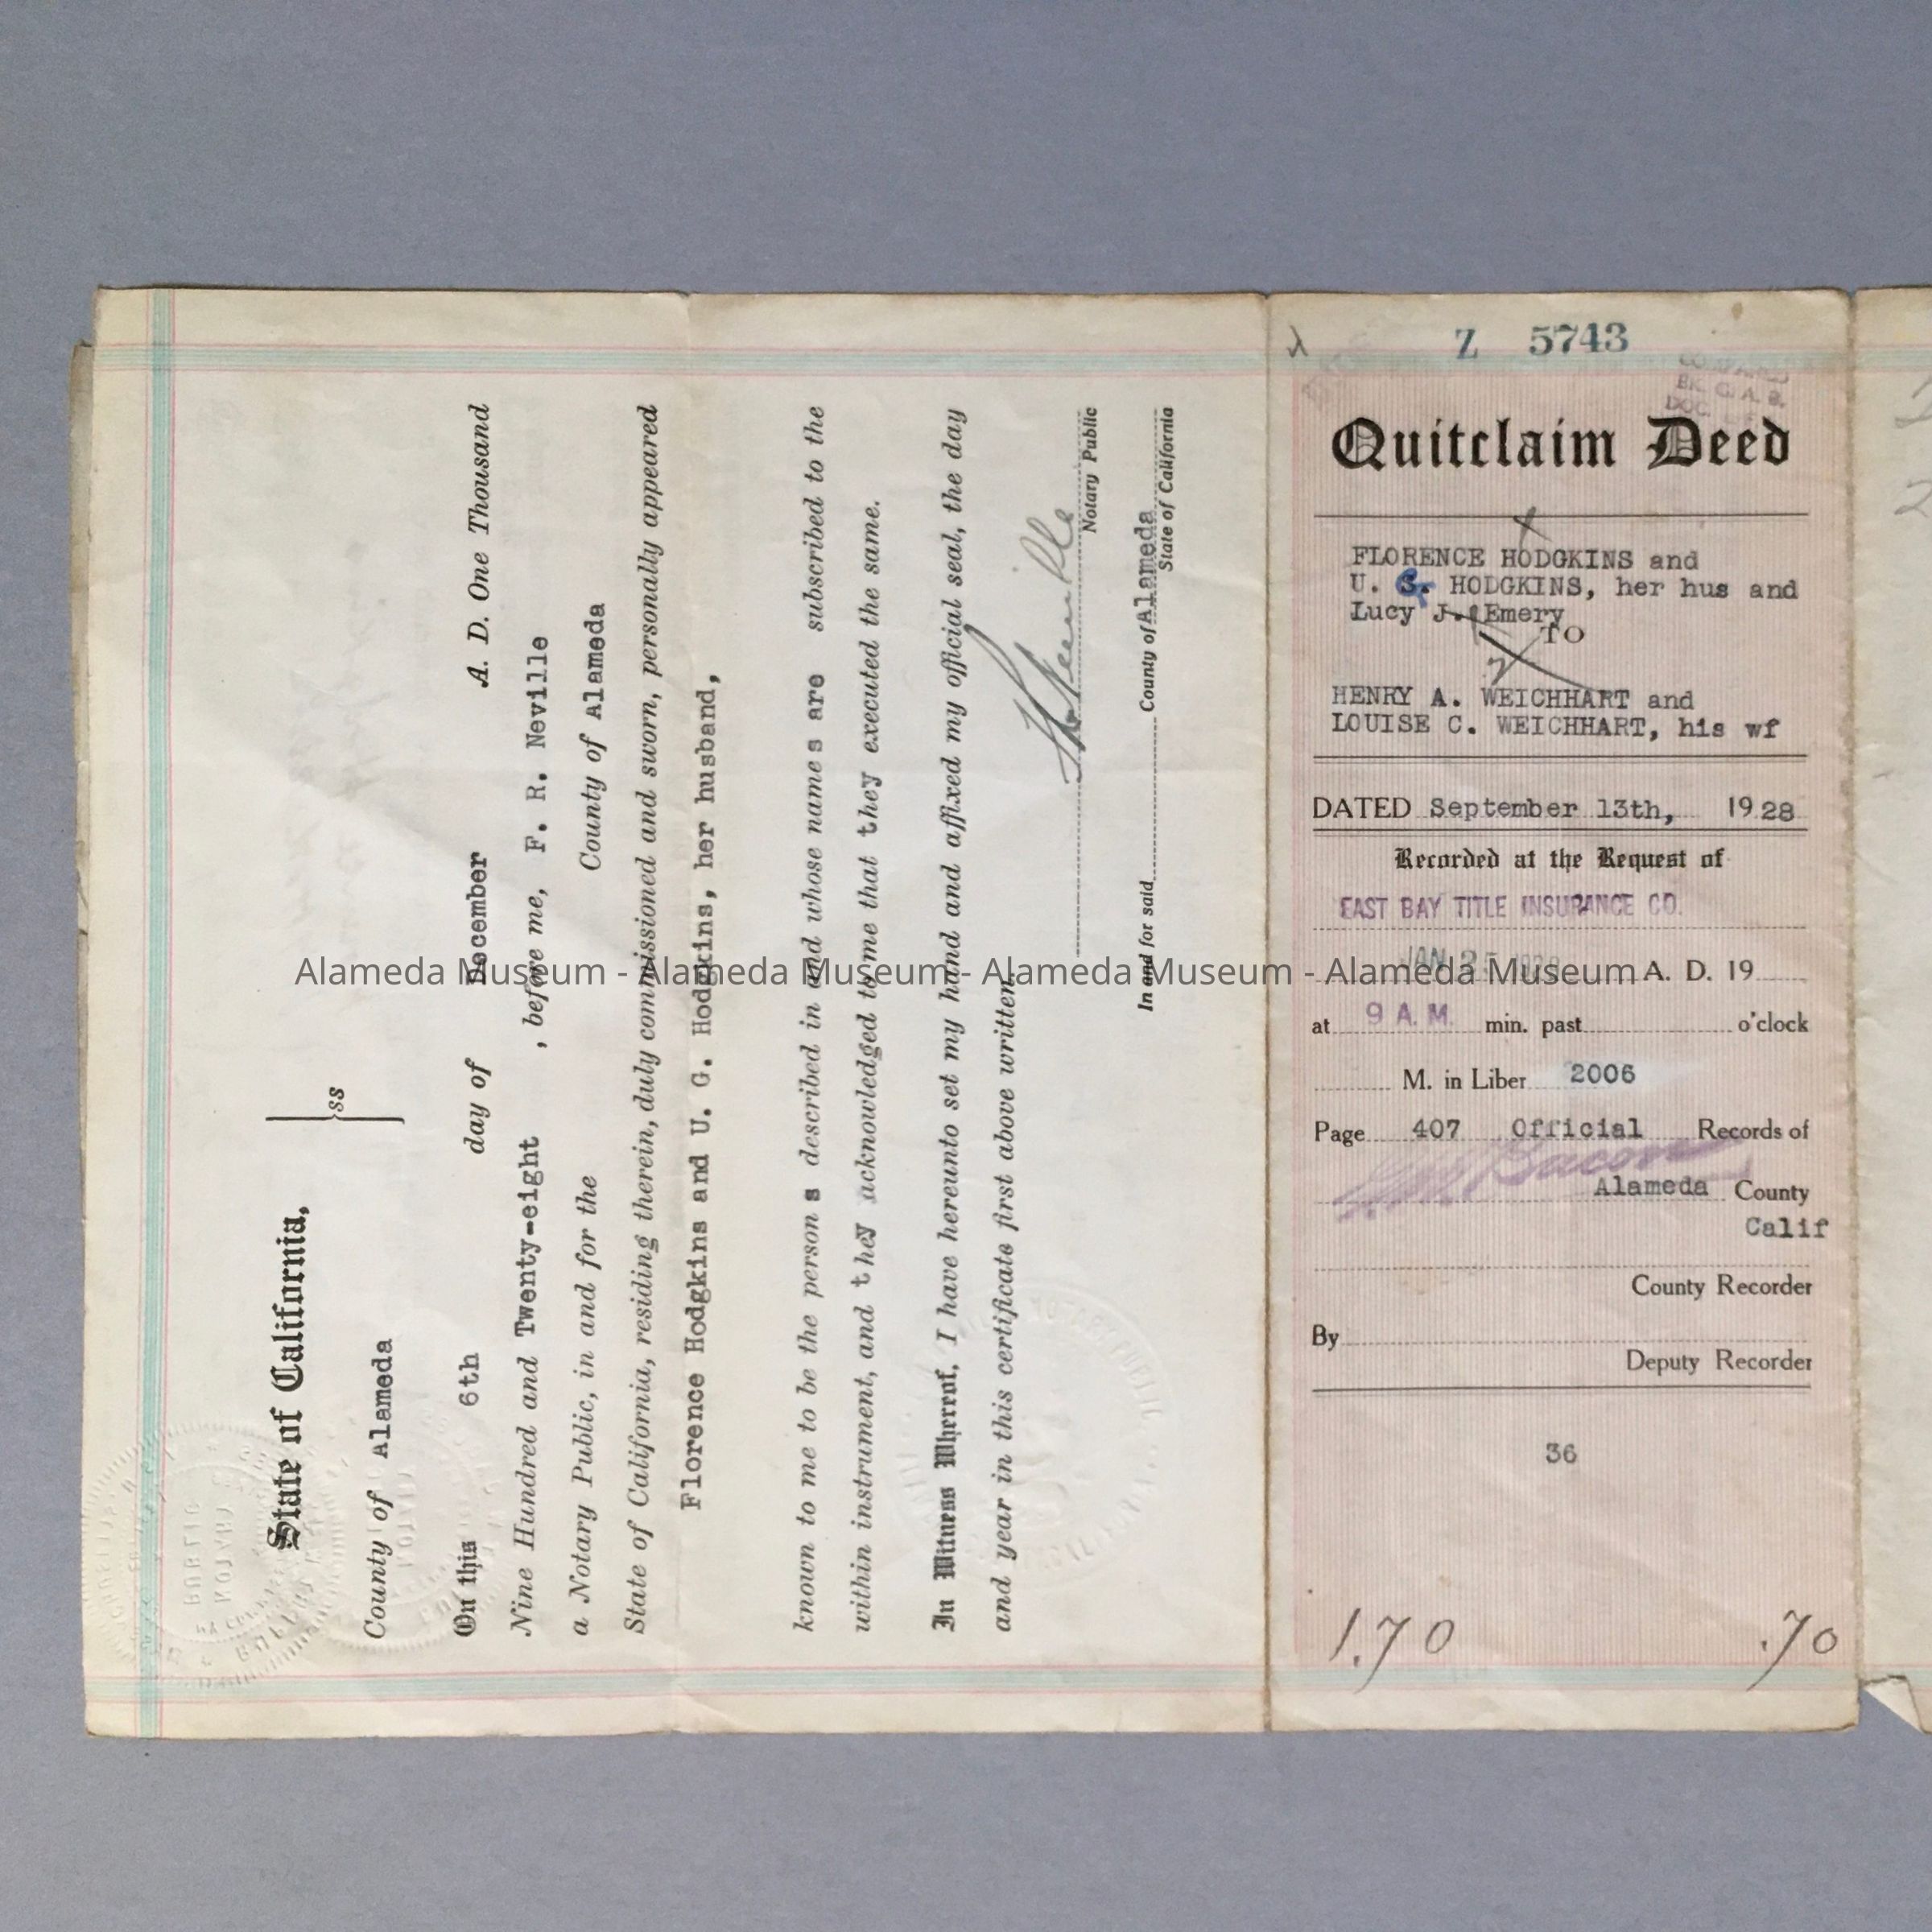 State of California,
ss
County of Alameda
On this 6th day of December A. D. One Thousand
Nine Hundred and Twenty-eight , before me, F. R. Neville
a Notary Public, in and for the County of Alameda
State of California, residing therein, duly commissioned and sworn, personally appeared
Florence Hodgkins and U. G. Hodgkins, her husband,
known to me to be the person s described in and whose name s are subscribed to the
within instrument, and t hey acknowledged to me that they executed the same.
In Witness Whereof, I have hereunto set my hand and affixed my official seal, the day
and year in this certificate first above written.
F R Neville
Notary Public
In and for said County of Alameda
State of California
Z 5743
Quitclaim Deed
FLORENCE HODGKINS and
U. G. HODGKINS, her hus and
Lucy J. Emery
TO
HENRY A. WEICHHART and
LOUISE C. WEICHHART, his wf
DATED September 13th, 1928
Recorded at the Request of
EAST BAY TITLE INSURANCE CO.
JAN 25 A. D. 19
at 9 A. M. min. past o'clock
M. in Liber 2006
Page 407 Official Records of
Bacon
Alameda County
Calif
County Recorder
By
Deputy Recorder
36
1.70 .70
Alameda Museum - Alameda Museum - Alameda Museum - Alameda Museum